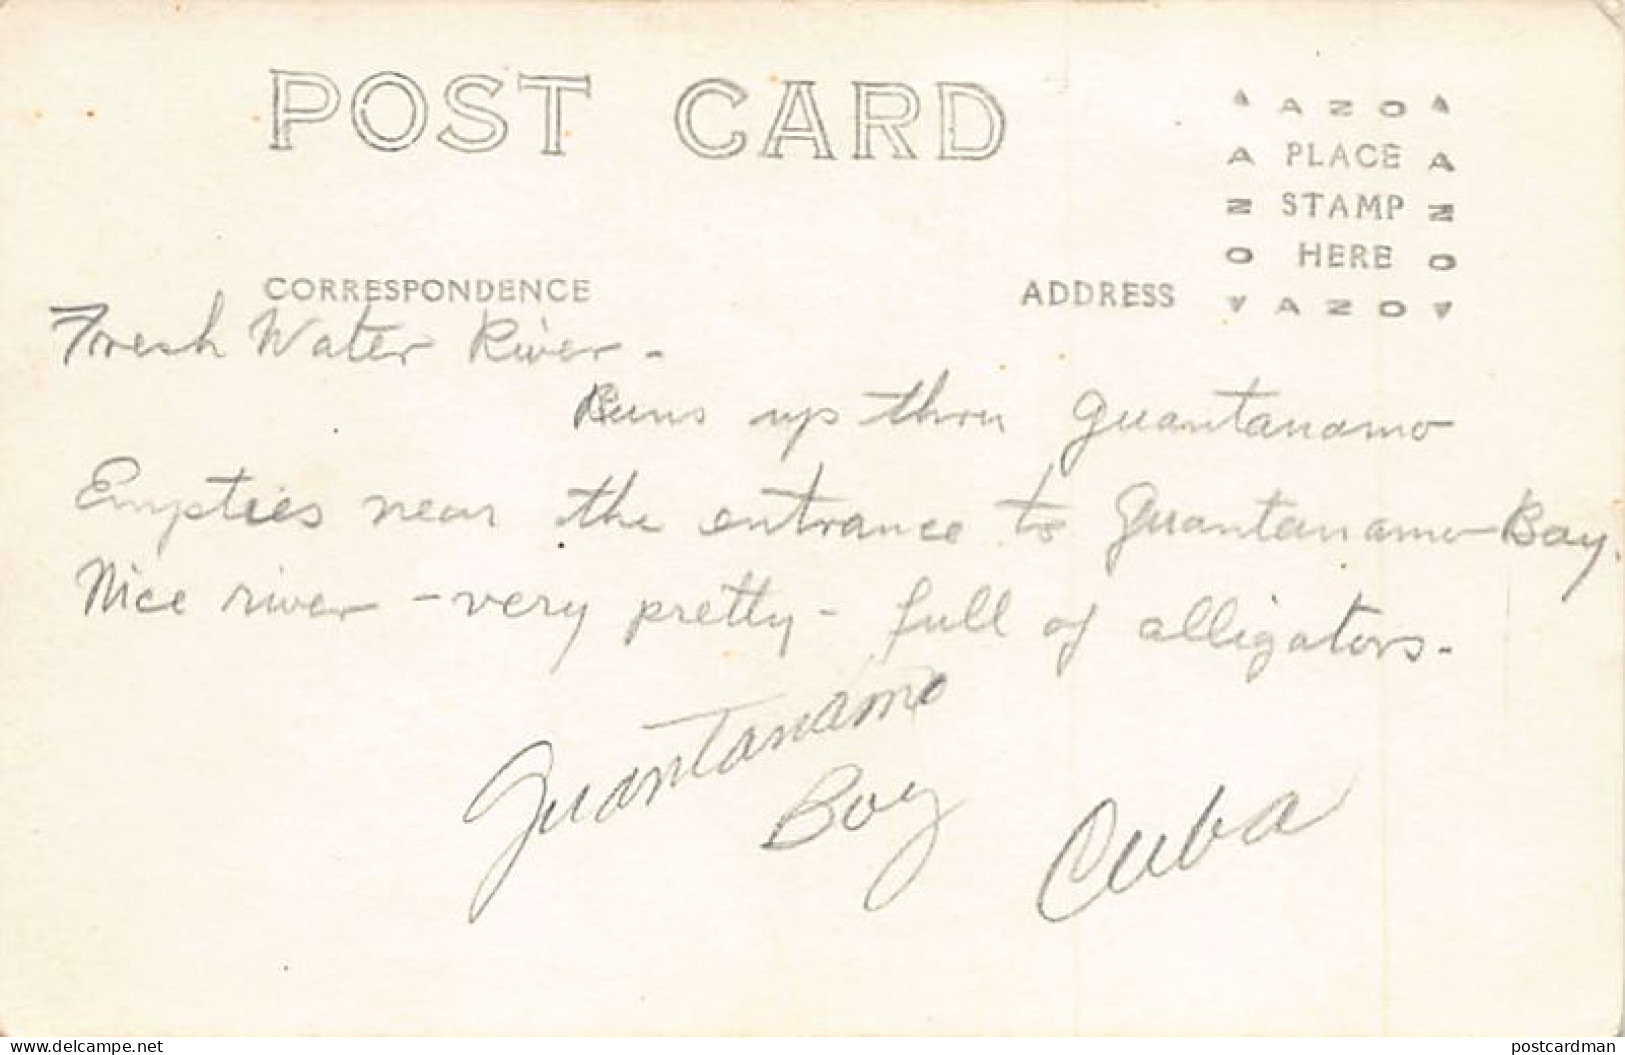 POST CARD
AZO
A PLACE A
N STAMP N
O HERE O
AZO
CORRESPONDENCE ADDRESS
Fresh Water River -
Runs up thru Guantanamo
Empties near the entrance to Guantanamo Bay.
Nice river - very pretty - full of alligators.
Guantanamo
Bay
Cuba
www.delcampe.net postcardman